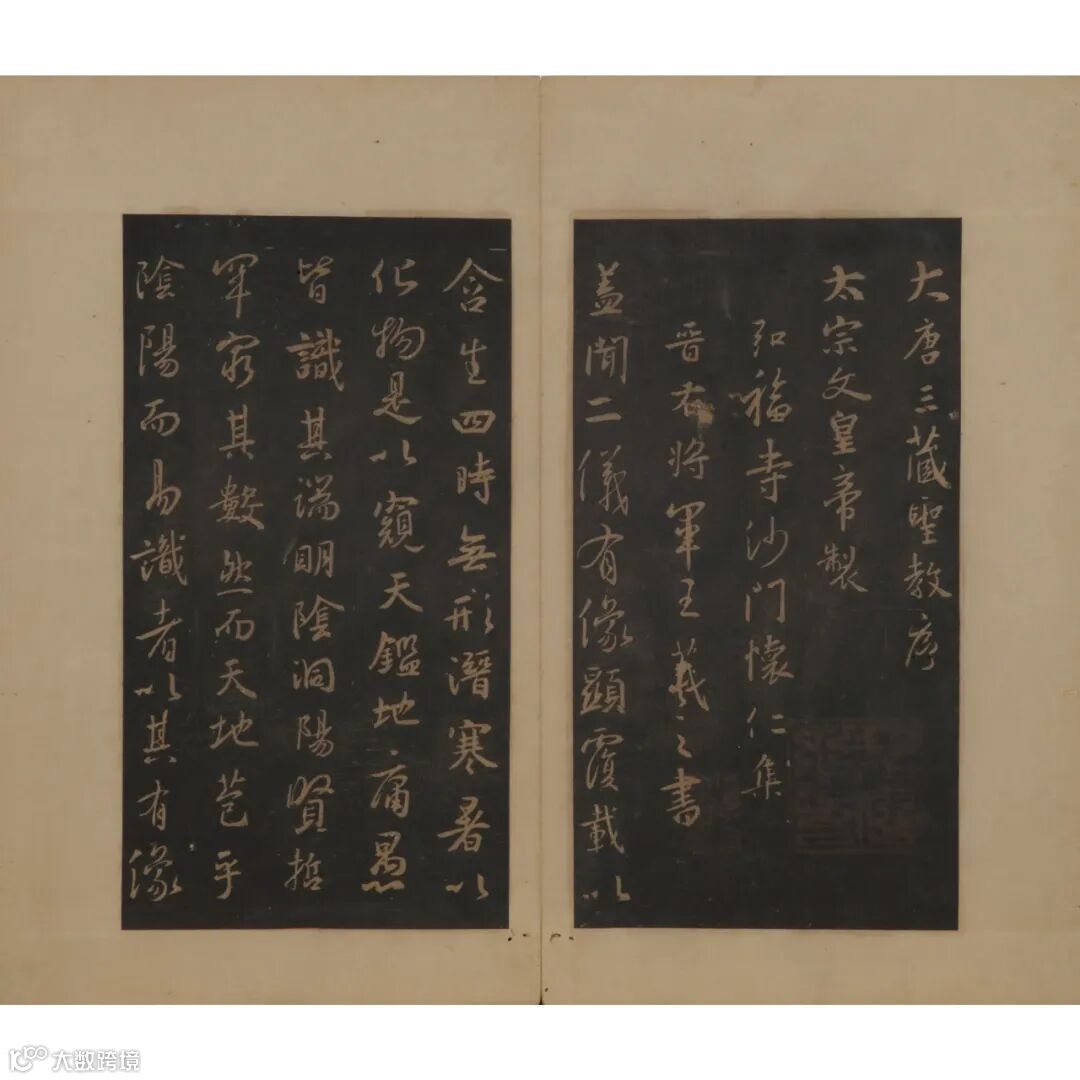 大唐三藏聖教序
太宗文皇帝製
弘福寺沙門懷仁集
晉右將軍王羲之書
蓋聞二儀有像顯覆載以
含生四時無形潛寒暑以
化物是以窺天鑑地庸愚
皆識其端明陰洞陽賢哲
罕窮其數然而天地苞乎
陰陽而易識者以其有像
大数跨境